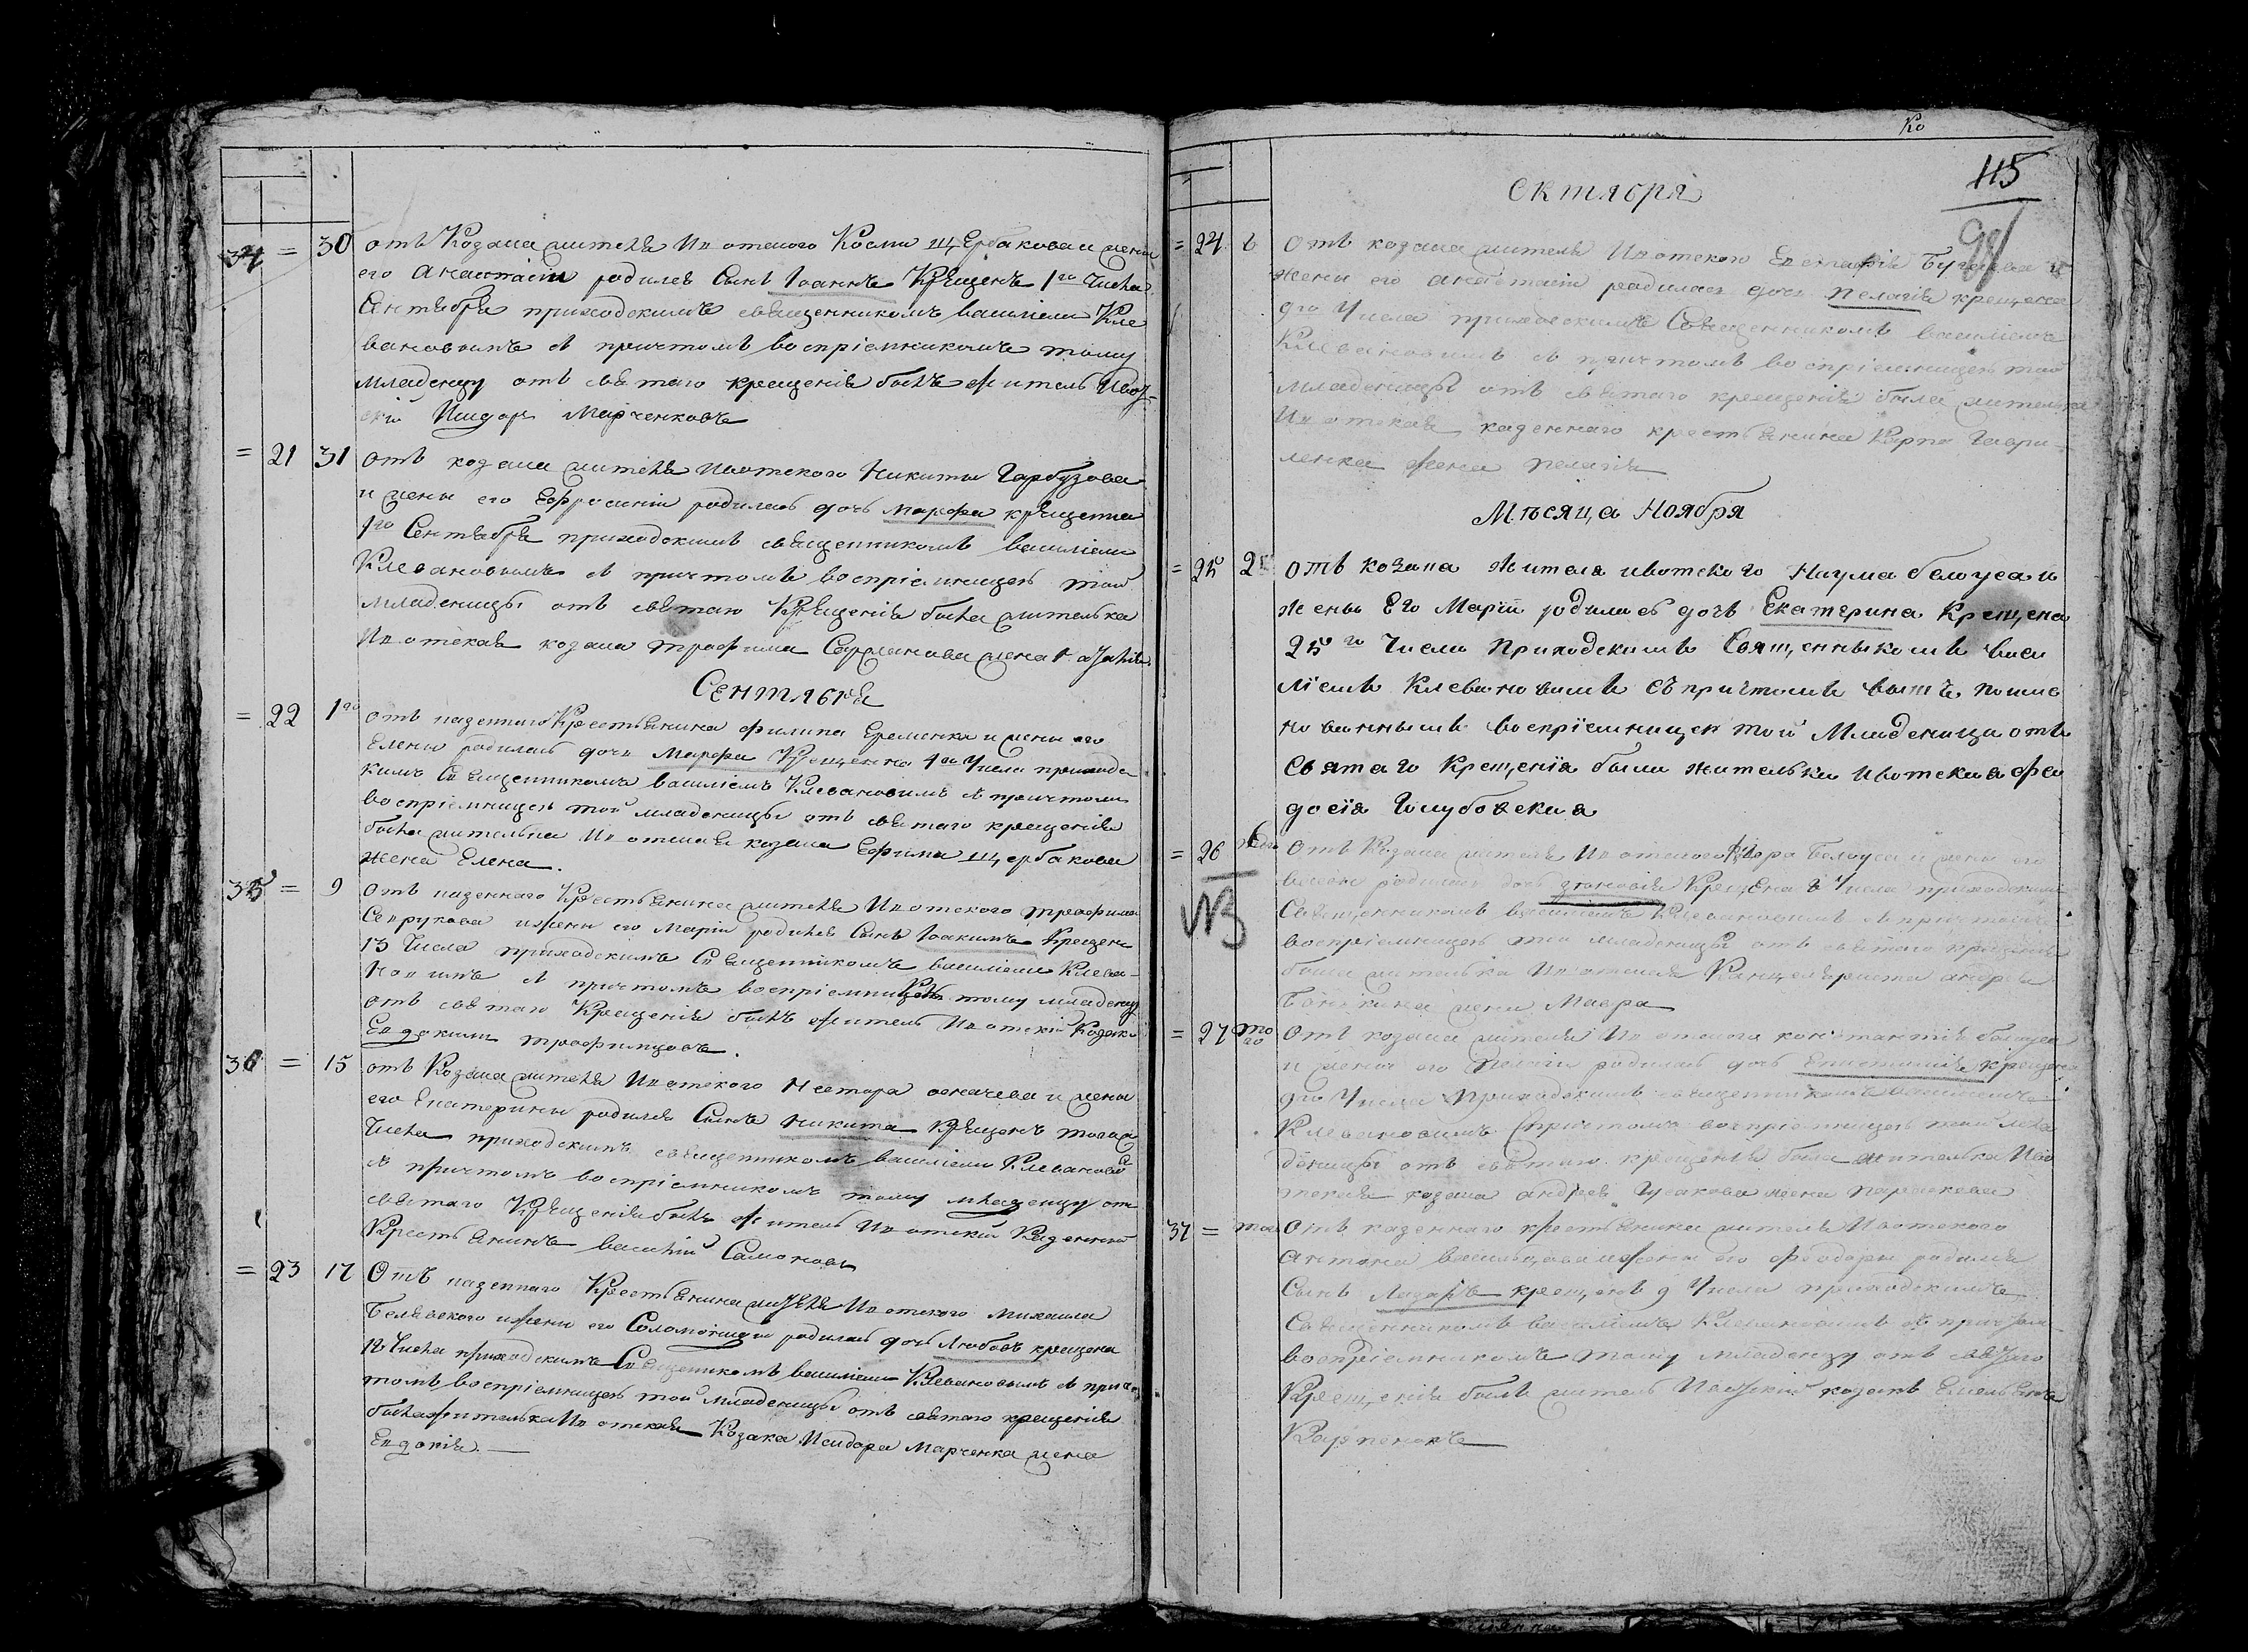 34 = 30 отъ Козака жителя Ивотского Косми Щербакова и жени
его Анастасіи родился Сынъ Іоаннъ Крещенъ 1го Числа
Сентября приходскимъ священникомъ василіемъ Кле
вановымъ съ причтомъ воспріемникомъ тому
младенцу отъ святаго крещенія былъ житель Ивот-
скій Исидоръ Марченковъ
= 21 31 отъ козака жителя ивотского Никиты Гарбузова
и жены его Ефросиніи родилась дочь Марфа крещенна
1го Сентября приходскимъ священникомъ василіемъ
Клевановымъ съ причтомъ воспріемницею той
младеницы отъ святаго Крещенія была жителька
Ивотская козака трофима жена
Сентября
= 22 1го отъ казеннаго Крестьянина филипа Еременка и жены его
Елены родилась дочь Марфа Крещенна 4го Числа приход
кимъ Священникомъ василіемъ Клевановимъ съ причтомъ
воспріемницею той младеницы отъ святаго крещенія
была жителька Ивотская козака Ефима Щербакова
жена Елена.
35 = 9 отъ казеннаго Крестьянина жителя Ивотского трофима
Севрукова и жены его Маріи родился Сынъ Іоакимъ Крещенъ
13 Числа приходскимъ Священникомъ василіемъ Клева-
новимъ съ причтомъ воспріемникомъ тому младенцу
отъ святаго Крещенія былъ житель Ивотскій Козакъ
Евдокимъ трофимцовъ.
36 = 15 отъ Козака жителя Ивотского Нестора осначева и жены
его Екатерины родился Сынъ Никита крещенъ тогожъ
Числа приходскимъ священникомъ василіемъ Клевановы
съ причтомъ воспріемникомъ тому младенцу отъ
святаго Крещенія былъ житель Ивотскій Казенный
Крестьянинъ василій Самоновъ
= 23 17 Отъ казеннаго Крестьянина жителя Ивотского Михаила
Белявского и жены его Соломониды родилась дочь Любовъ крещена
18 Числа приходскимъ Священникомъ василіемъ Клевановымъ съ прич
томъ воспріемницею той младеницы отъ святаго крещенія
была жителька Ивотская Козака Исидора Марченка жена
Евдокія.
Ко
115
98
Октября
= 24 6 Отъ козака жителя Ивотского Евстафія и
жены его анастасіи родилась дочь Пелагія крещена
9го Числа приходскимъ Священникомъ василіемъ
Клевановимъ съ причтомъ воспріемницею той
младеницы отъ святаго крещенія была жителька
Ивотская казеннаго крестьянина Карпа Гаври-
ленка жена Пелагія
Мѣсяца Ноября
= 25 25 отъ козака жителя ивотского Наума белоуса и
жены Его Маріи родилась дочь Екатерина Крещена
25го Числа Приходскимъ Священыкомъ васи
ліемъ Клевановимъ съ причтомъ вышъ поиме
нованнымъ воспріемницею той Младеница отъ
Святаго Крещенія была жителька ивотская фео
досія Голубовская
= 26 Отъ Козака жителя Ивотского Белоуса и жены его
родилась дочь Крещена Числа приходскимъ
Священникомъ василіемъ Клевановымъ съ причтомъ
NB
воспріемницею той младеницы отъ святаго крещенія
была жителька Ивотская Канцеляриста андрея
жена Мавра
= 27 того Отъ козака жителя Ивотского
и жены его родилась дочь Епистимія крещена
9го Числа Приходскимъ священникомъ василіемъ
Клевановимъ Спричтомъ воспріемницею той мла
деницы отъ святаго крещенія была жителька Иво
тская козака андрея Гусакова жена параскева
37 = того Отъ казеннаго крестьянина жителя Ивотского
антона и жены его феодоры родился
Сынъ Лазарь крещенъ 9 Числа приходскимъ
Священникомъ василіемъ Клевановимъ съ причтомъ
воспріемникомъ тому младенцу отъ святаго
Крещенія былъ житель Ивотскій козакъ Емельянъ
Карпенокъ